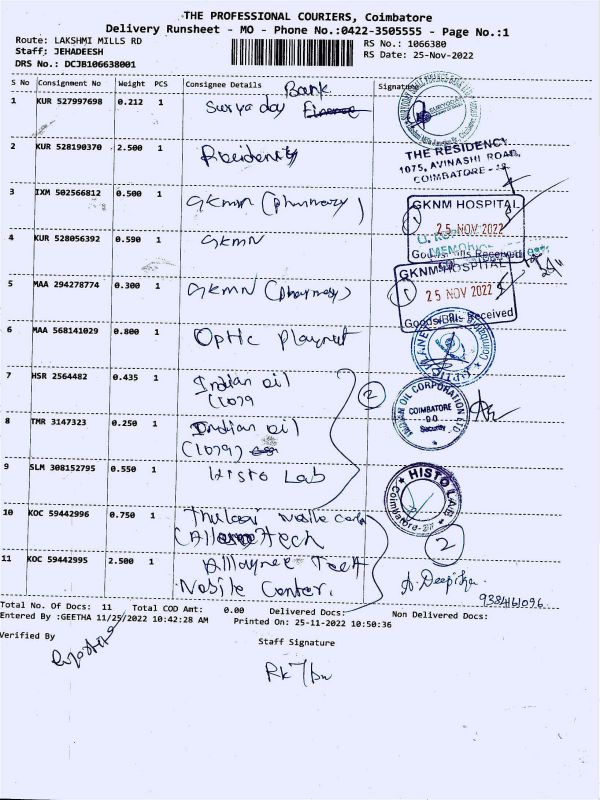 THE PROFESSIONAL COURIERS, Coimbatore
Delivery Runsheet - MO - Phone No.:0422-3505555 - Page No.:1
Route: LAKSHMI MILLS RD
Staff: JEHADEESH
DRS No.: DCJB106638001
RS No.: 1066380
RS Date: 25-Nov-2022
S No Consignment No Weight PCS Consignee Details Signature
1 KUR 527997698 0.212 1 Suryaday Bank
2 KUR 528190370 2.500 1
THE RESIDENCY
1075, AVINASHI ROAD,
COIMBATORE - 18
3 IXM 502566812 0.500 1 GKMN
GKNM HOSPITAL
25 NOV 2022
4 KUR 528056392 0.590 1 GKMN
MEMORIAL
GKNM HOSPITAL
5 MAA 294278774 0.300 1 GKMN
25 NOV 2022
Goods/Bills Received
6 MAA 568141029 0.800 1 Optic
7 HSR 2564482 0.435 1 Indian oil
(1079
2
INDIAN OIL CORPORATION LTD
COIMBATORE
Security
8 TMR 3147323 0.250 1 Indian oil
(1079)
9 SLM 308152795 0.550 1 Histo Lab
HISTO LAB
Coimbatore-37
10 KOC 59442996 0.750 1
2
11 KOC 59442995 2.500 1
A. Deepika
Total No. Of Docs: 11 Total COD Amt: 0.00 Delivered Docs: Non Delivered Docs:
Entered By :GEETHA 11/25/2022 10:42:28 AM Printed On: 25-11-2022 10:50:36
Verified By
Staff Signature